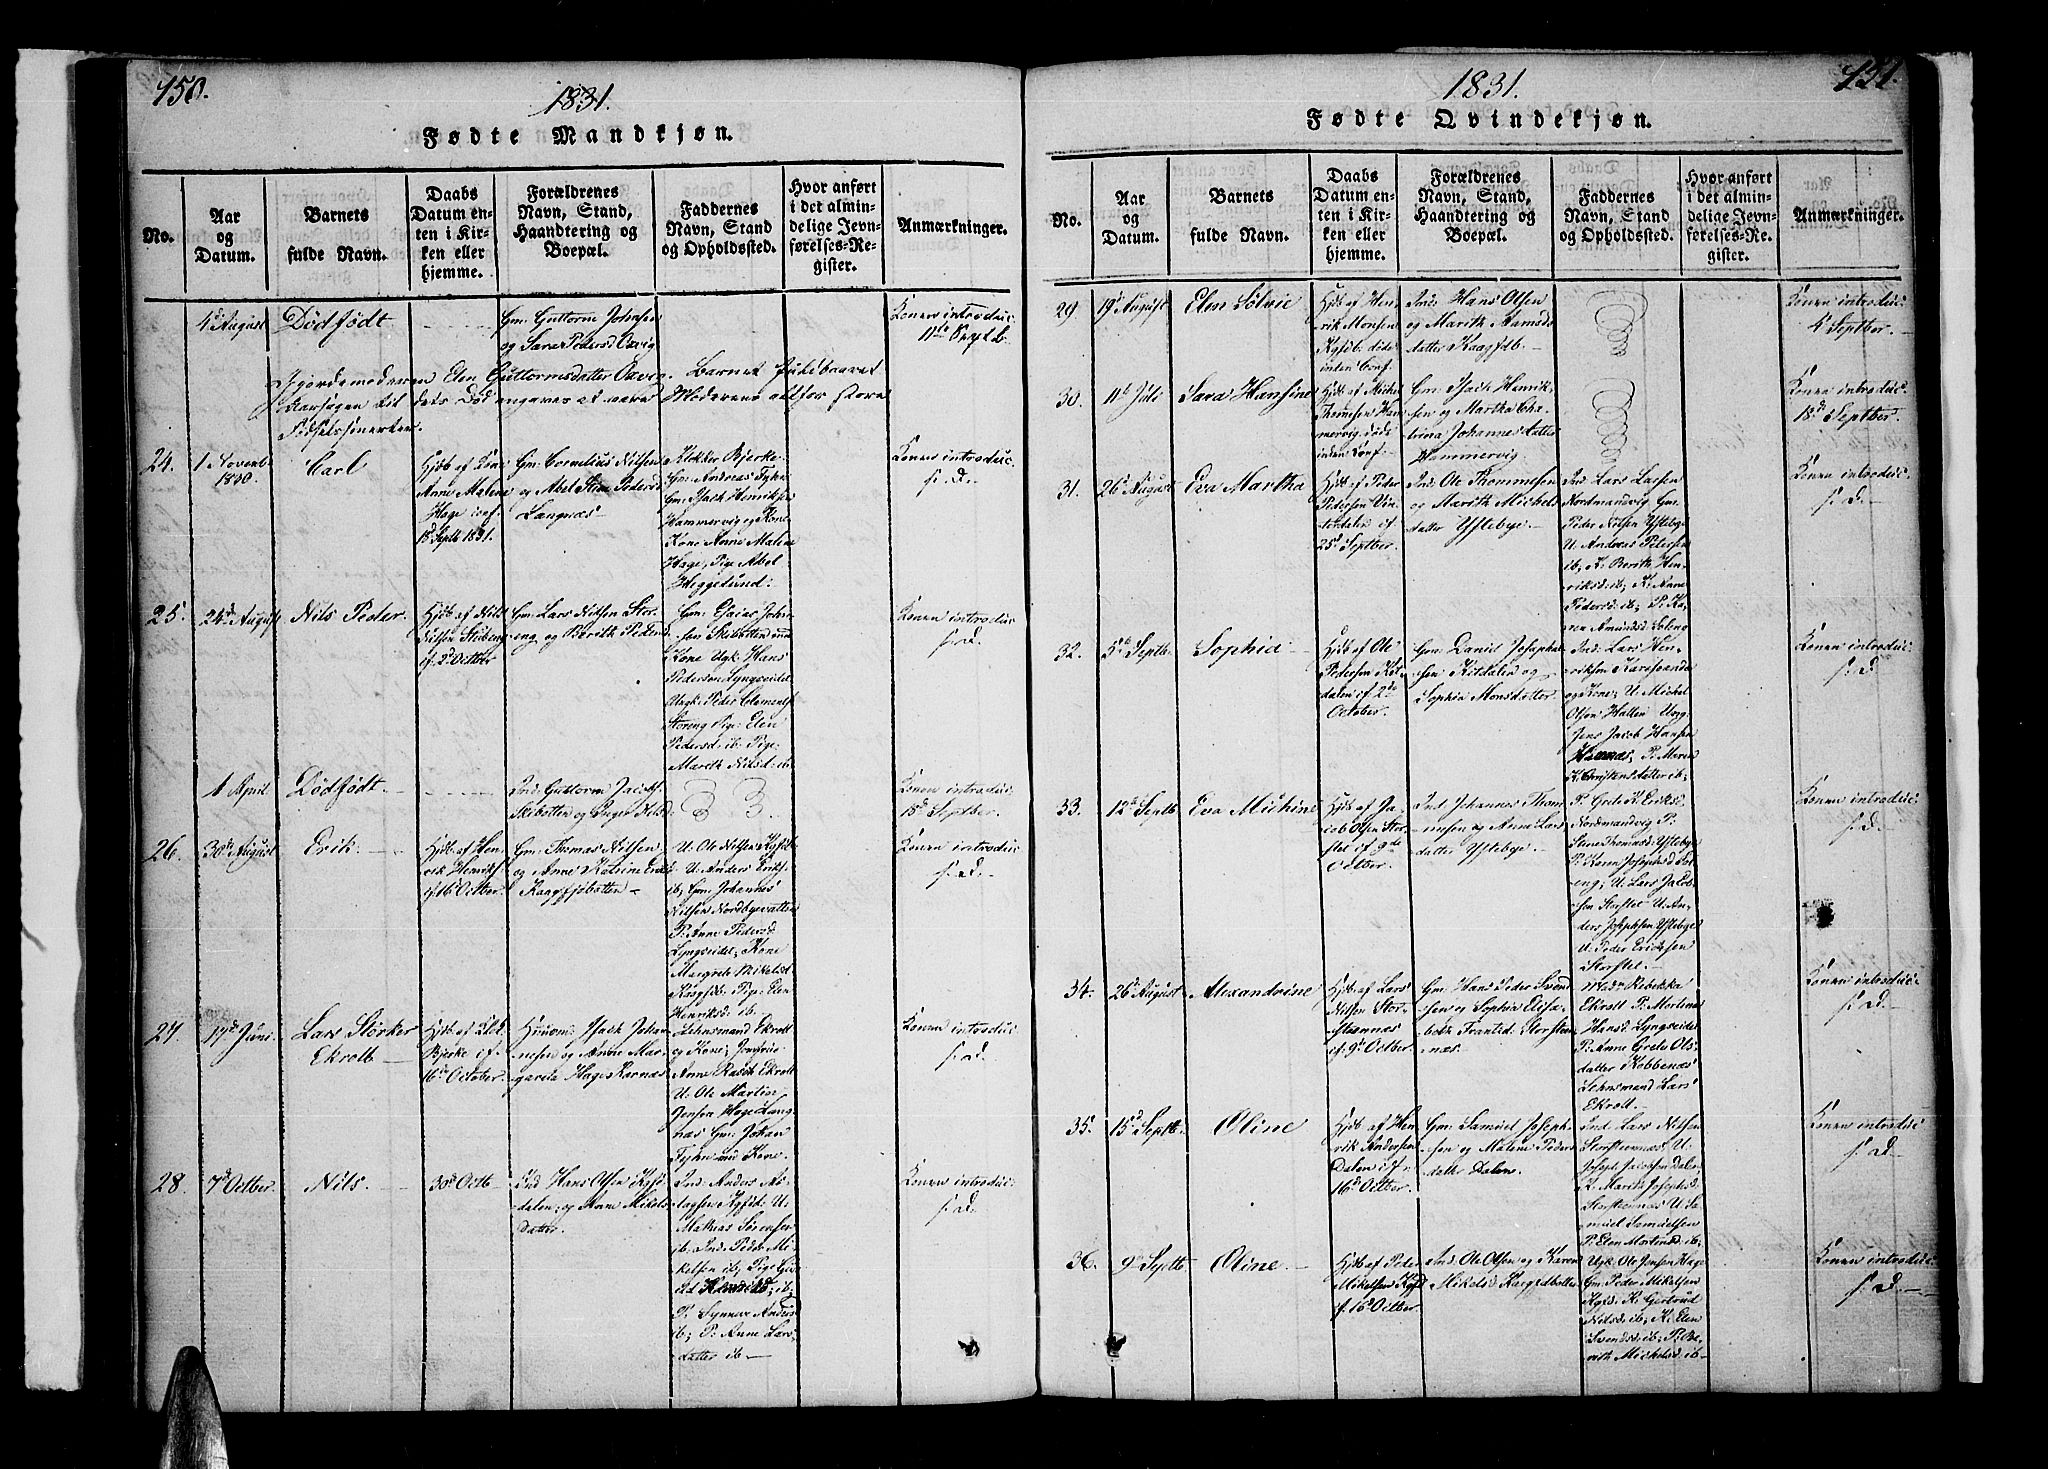 150.
1831.
Fødte Mandkjøn.
No.
Aar
og
Datum.
Barnets
fulde Navn.
Daabs
Datum en-
ten i Kir-
ken eller
hjemme.
Forældrenes
Navn, Stand,
Haandtering og
Boepæl.
Faddernes
Navn, Stand
og Opholdssted.
Hvor anført
i det almin-
delige Jevn-
førelses-Re-
gister.
Anmærkninger.
4de August
Dödfödt
Gm: Guttorm Johnsen
og Sara Pedersd
Konen introduc:
11te Septb
Jgordemoderen Elen Guttormsdatter
Barnet
Aarsagen til dets Död angaves at være Moderens altfor store
24.
1 Novenb
1830.
Carl
Hjdb af
Anne Malene
Hage conf
18d Septb 1831.
Gm: Cornelius Nilsen
og Abel Pedersd
Langnæs
Klokker Bjerke
Gm: Andreas
Gm: Isach Henriksen
Hammervig og Kone
Kone Anne Malene
Hage, Pige Abel
Heggelund:
Konen introduc:
s. D.
25.
24d August
Nils Peder.
Hjdb af Nils
Nilsen
cf. 2d October
Gm: Lars Nilsen Stor-
eng og Berith Pedersd
Gm: Esaias John-
sen Skibotten
Kone Ungk: Hans
Pedersen Lyngseidet
Ungk: Peder Clements
Storeng Pig: Elen
Pedersd: ib: Pige:
Marith Nilsd: ib:
Konen introduc:
s. D.
1 April
Dödfödt
Ind: Guttorm Jacobs
Skibotten og Inger Nilsd:
Konen introduc:
18d Septber.
26.
30d August
Erik
Hjdb: af Hen-
rik Henriks
cf. 16 Octber.
Gm: Thomas Nilsen
og Anne Katrine Eriks
Kaagfjöbotten
U: Ole Nilsen Kgfjd
U: Anders Eriks
ib; Gm: Johannes
Nilsen Nordbyevatten
P: Anne Pedersd
Lyngseidet; Kone
Margrete Mikelsd
Kaagfd: Pige: Elen
Henriksd: ib.
Konen introduc:
s. D.
27.
17d Juni
Lars Störker
Ekroll
Hjdb af Klok
Bjerke cf.
16d October.
Huusm: Isach Johan-
nesen og Anne Mar-
gareta Hage Karnæs
Lehnsmand Ekroll
og Kone; Jomfrue
Anne Rasch Ekroll
U: Ole Martin
Jensen Hage Lang-
næs Gm: Johan
Konen introduc:
s. D.
28.
7d Octber.
Nils.
30d Octb
Ind Hans Olsen Kgfd
dalen; og Anne Mikels
datter.
Ind: Anders
Kgfd: U:
Mathias Sörensen
ib; Ind: Peder Mi-
kelsen ib; Pige
Henriksd; ib;
P: Synnøve Andersd
ib; P: Anne Lars-
datter ib
Konen introduc:
s. D.
151.
1831.
Fødte Qvindekjøn.
No.
Aar
og
Datum.
Barnets
fulde Navn.
Daabs
Datum en-
ten i Kir-
ken eller
hjemme.
Forældrenes
Navn, Stand,
Haandtering og
Boepæl.
Faddernes
Navn, Stand
og Opholdsted.
Hvor anført
i det almin-
delige Jevn-
førelses-Re-
gister.
Anmærkninger.
29.
19d August
Elen Sølvie
Hjdb af Hen-
rik Monsen
Kgfd: döde
inden Conf.
Ind: Hans Olsen
og Marith Aarnsd
datter Kaagfdb.
Konen introduc:
4 Septber.
30.
11d Juli
Sara Hansine
Hjdb af
Thomesen Ham-
mervig, döde
inden Conf.
Gm: Isach Henrik-
sen og Martha Cha-
trina Johannesdatter
Hammervig
Konen introduc:
18d Septber.
31.
26d August
Eva Martha
Hjdb: af Peder
Pedersen
cf
25d Septber.
Ind: Ole Thommesen
og Marith Michels
datter Ystebye.
Ind: Lars Larsen
Nordmandvig Gm:
Peder Nilsen Ystebye
U: Andreas Petersen
ib; K: Berith Hen-
riksd: ib; K: Anne
Pedersd: ib; P: Ka-
ren Amundsd:
Konen introduc:
s. D.
32.
5te Septb
Sophia
Hjdb: af Ole
Pedersen Kit-
dalen cf. 2de
October.
Gm: Daniel Josephs
sen Kitdalen og
Sophia Monsdatter.
Ind: Lars Hen-
riksen
og Kone; U: Michel
Olsen Hatten Ung-
Jens Jacob Hansen
P: Maren
K: Christensdatter ib;
Konen introduc:
s. D.
33.
12d Septb
Eva Michine
Hjdb: af Ja-
cob Olsen Stor-
slet cf 9de
Octber.
Ind: Johannes Thom-
mesen og Anne Lars-
datter Ystebye.
P: Grete K: Eriksd:
Nordmandvig P:
Thomasd: Ystebye
P: Karen Josephsd
U: Lars Jacob-
sen Storslet U: An-
ders Josephsen Ystebye
U: Peder Ericksen
Storslet.
Konen introduc:
s. D.
34.
26d August
Alexandrine
Hjdb: af Lars
Nilsen Stor-
steennæs
cf. 9d Octber.
Gm: Hans Peder Svend
sen og Sophia Elisa-
beth Frantsd: Storsten-
næs.
Rebekka
Ekroll P: Mortine
Hansd: Lyngseidet
P: Anne Grete Ols-
datter Kobbenæs
Lehnsmand Lars
Ekroll.
Konen introduc:
s. D.
35.
15d Septb.
Oline
Hjdb: af Hen-
rik Andersen
Dalen cf.
16d Octber.
Gm: Samuel Joseph-
sen og Malene Peders
dattr Dalen.
Ind: Lars Nilsen
Storsteennæs U:
Joseph: Jacobsen Dalen
K: Marith Josephsd
Storsteennæs U: Sa-
muel Samuelsen
P: Elen Mortensd: ib;
Konen introduc:
s. D.
36.
9de Septb
Oline
Hjdb: af Peder
Mikelsen Kgfd
cf. 16d Octber.
Ind: Ole Olsen og Karen
Mikelsd: Kaagfdbotten
Ugk: Ole Jensen Hage
Gm: Peder Mikelsen
Kgfd: K: Gertrud
Nilsd: ib; K: Elen
Svendsd: ib; P: Be-
rith Michelsd: ib
Konen introduc:
s. D.